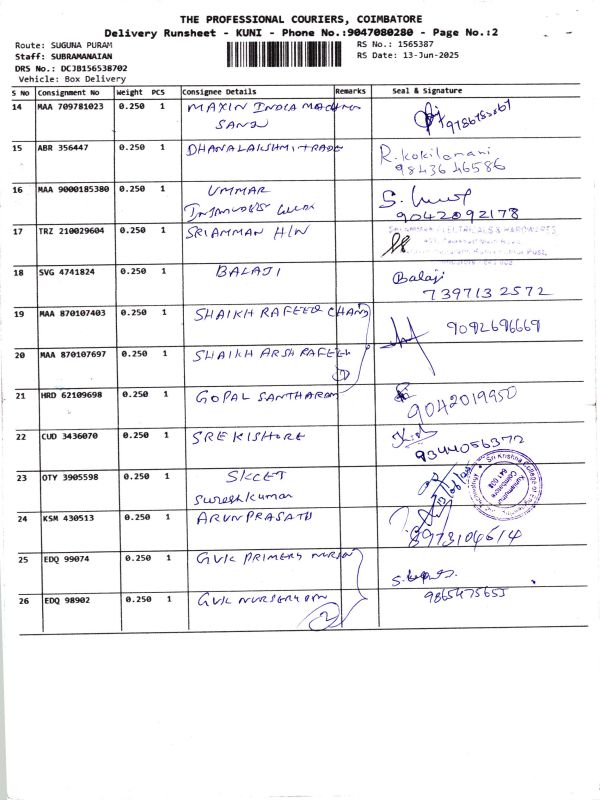 THE PROFESSIONAL COURIERS, COIMBATORE
Delivery Runsheet - KUNI - Phone No.:9047080280 - Page No.:2
Route: SUGUNA PURAM
RS No.: 1565387
Staff: SUBRAMANAIAN
RS Date: 13-Jun-2025
DRS No.: DCJB156538702
Vehicle: Box Delivery
S No Consignment No Weight PCS Consignee Details Remarks Seal & Signature
14 MAA 709781023 0.250 1 MAXIN INDIA
15 ABR 356447 0.250 1 DHANALAKSHMI TRADE R. Kokilamani
98436 46586
16 MAA 9000185380 0.250 1 UMMAR
9042092178
17 TRZ 210029604 0.250 1 SRIAMMAN H/W
ELECTRICALS & HARDWARES
18 SVG 4741824 0.250 1 BALAJI Balaji
7397132572
19 MAA 870107403 0.250 1 SHAIKH RAFEEQ CHAND 9092696669
20 MAA 870107697 0.250 1 SHAIKH ARSH RAFEEK
2
21 HRD 62109698 0.250 1 GOPAL SANTHARAM 9042019950
22 CUD 3436070 0.250 1 SREKISHORE
9344056372
23 OTY 3905598 0.250 1 SKCET
Sureshkumar
Sri Krishna College of
Kuniamuthur
Coimbatore
641 008
24 KSM 430513 0.250 1 ARUNPRASATH
8973104614
25 EDQ 99074 0.250 1 GVK PRIMERY
26 EDQ 98902 0.250 1 GVK NURSERY
9865475655
2